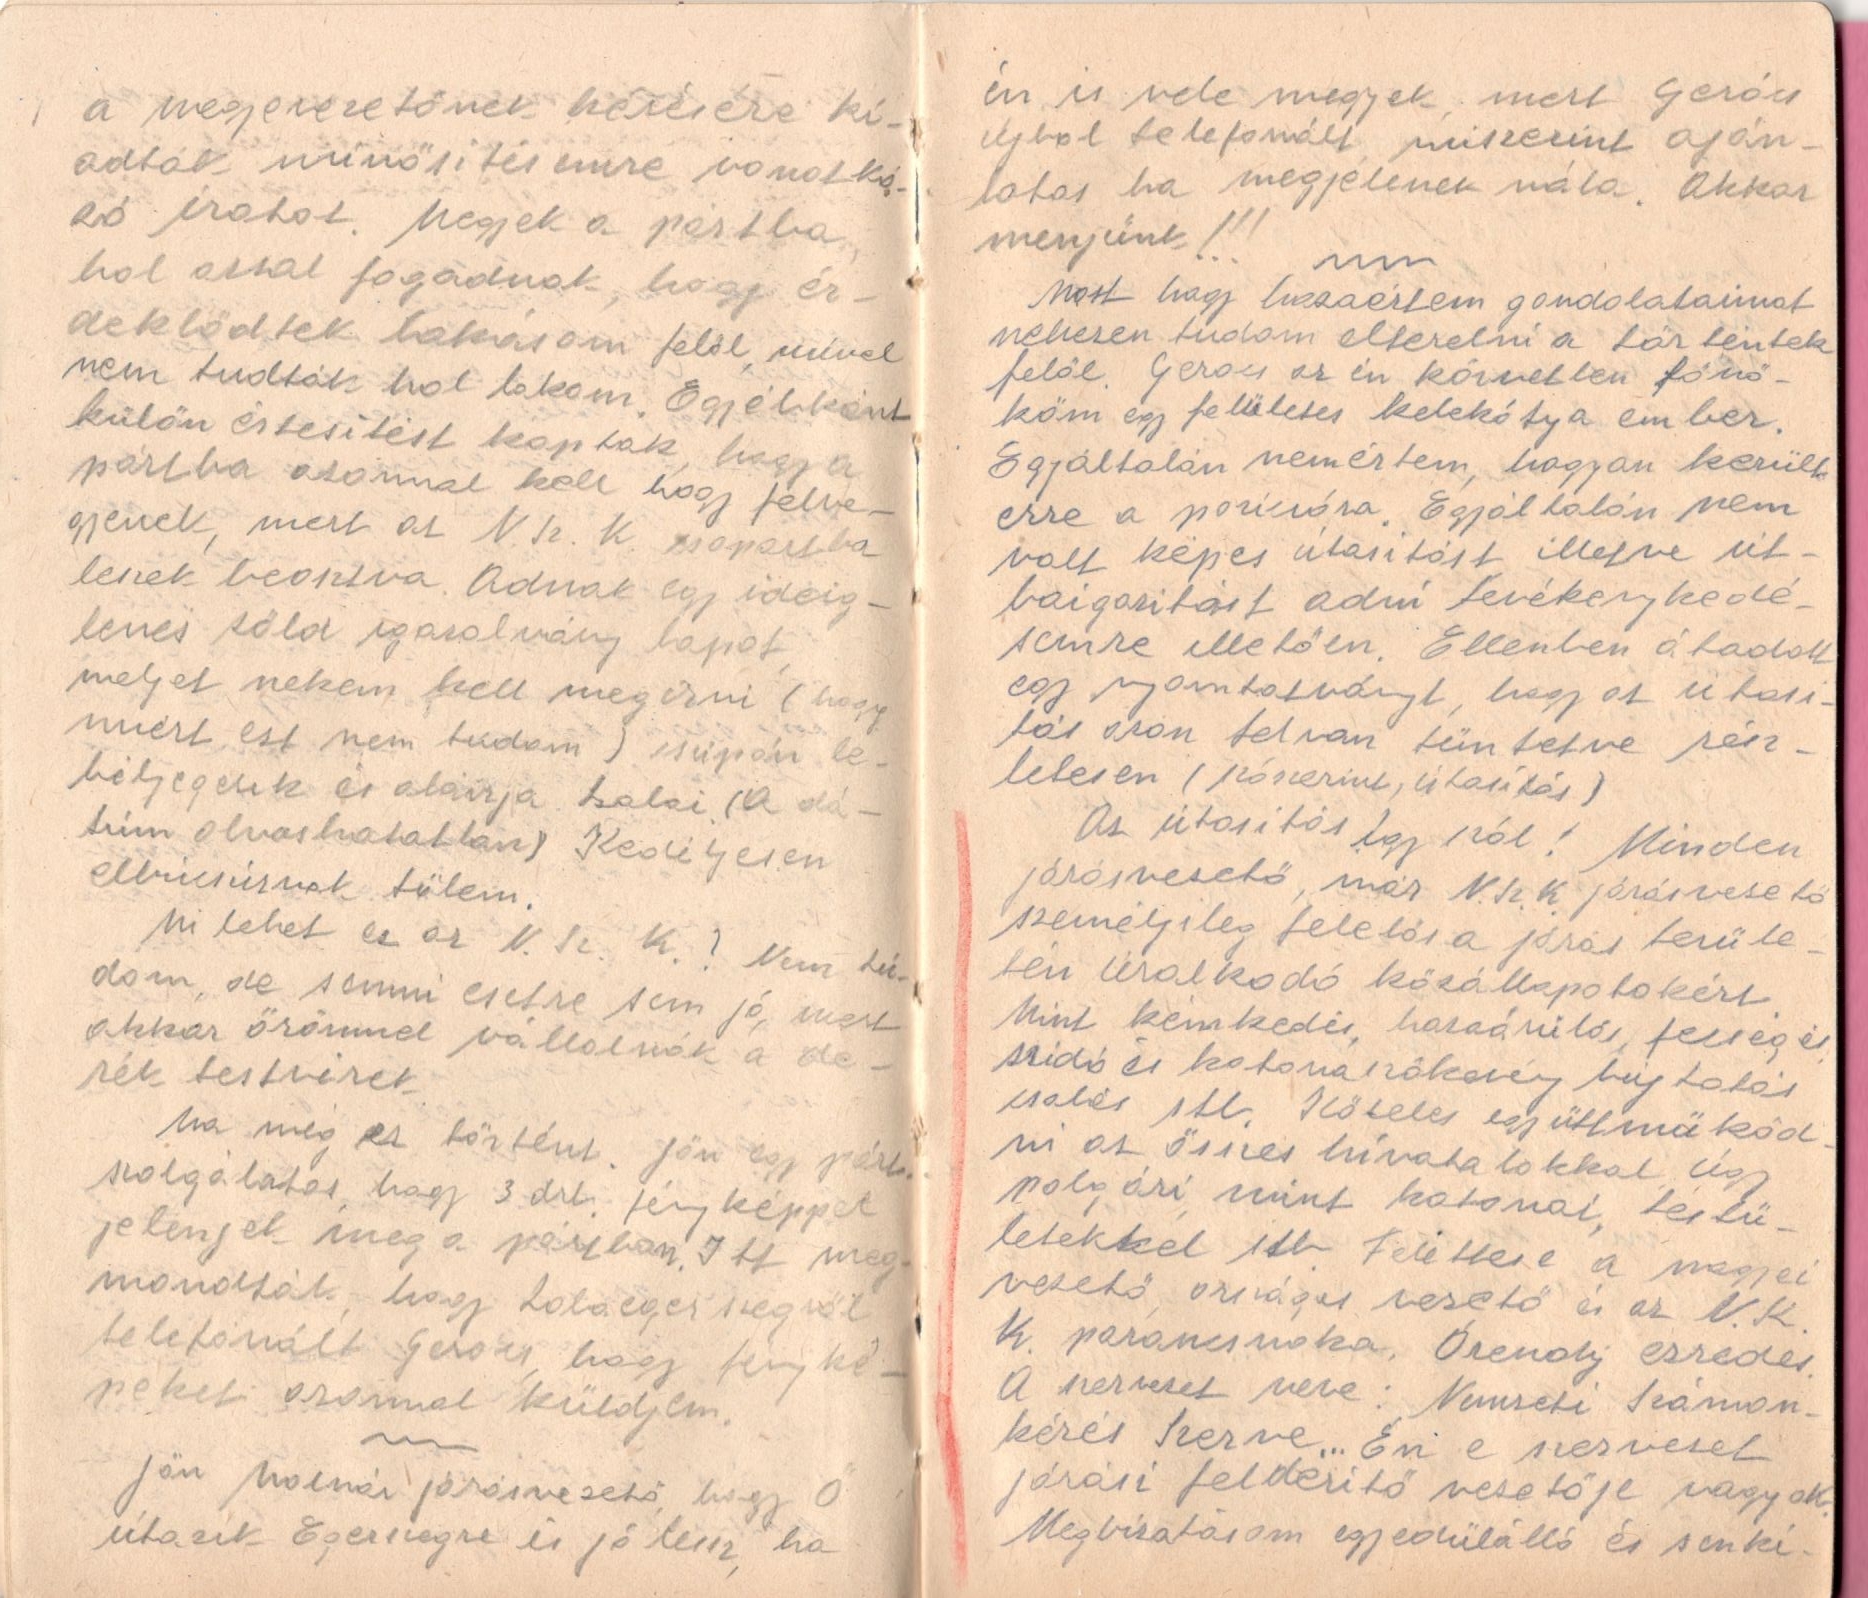 a megyevezetőnek kérésére ki-
adták minősitésemre vonatko-
zó iratot. Megyek a pártba,
hol azzal fogadnak, hogy ér-
deklődtek lakásom felől, mivel
nem tudták hol lakom. Egyébként
külön értesitést kaptak, hogy a
pártba azonnal kell hogy felve-
gyenek, mert az N. Sz. K. csoportba
leszek beosztva. Adnak egy ideig-
lenes zöld igazolvány lapot,
melyet nekem kell megirni (hogy
miért ezt nem tudom) csupán le-
bélyegezik és aláirja Szalai. (A dá-
tum olvashatatlan) Kedélyesen
elbúcsúznak tőlem.
Mi lehet ez az N. Sz. K.? Nem tu-
dom, de semmi esetre sem jó, mert
akkor örömmel vállalnák a de-
rék testvérek.
Ma még ez történt. Jön egy párt-
szolgálatos, hogy 3 drb. fényképpel
jelenjek meg a pártban. Itt meg-
mondták, hogy Zalaegerszegről
telefonált Gerócs, hogy fényké-
peket azonnal küldjem.
Jön Molnár járásvezető, hogy Ő
útazik Egerszegre és jó lesz, ha
én is vele megyek, mert Gerócs
újbol telefonált, miszerint aján-
latos ha megjelenek nála. Akkor
menjünk!!!
Most hogy hazaértem gondolataimat
nehezen tudom elterelni a történtek
felől. Gerócs az én közvetlen főnö-
köm egy felületes kelekótya ember.
Egyáltalán nem értem, hogyan került
erre a pozicióra. Egyáltalán nem
volt képes útasitást illetve út-
baigazitást adni tevékenykedé-
semre illetően. Ellenben átadott
egy nyomtatványt, hogy az útasi-
tás azon fel van tüntetve rész-
letesen (szószerint, útasitás)
Az útasitás igy szól! Minden
járásvezető, már N. Sz. K. járásvezető
személyileg felelős a járás terüle-
tén uralkodó közállapotokért.
Mint kémkedés, hazaárulás, fosség és
zsidó és katonaszökevény bújtatás
csalás stb. Köteles együttmüköd-
ni az összes hivatalokkal, úgy
polgári, mint katonai, testü-
letekkel stb. Felettese a megyei
vezető, országos vezető és az N. Sz.
K. parancsnoka, Orendy ezredes.
A szervezet neve: Nemzeti Számon-
kérés Szerve... Én e szervezet
járási felderitő vezetője vagyok.
Megbizatásom egyedülálló és senki-